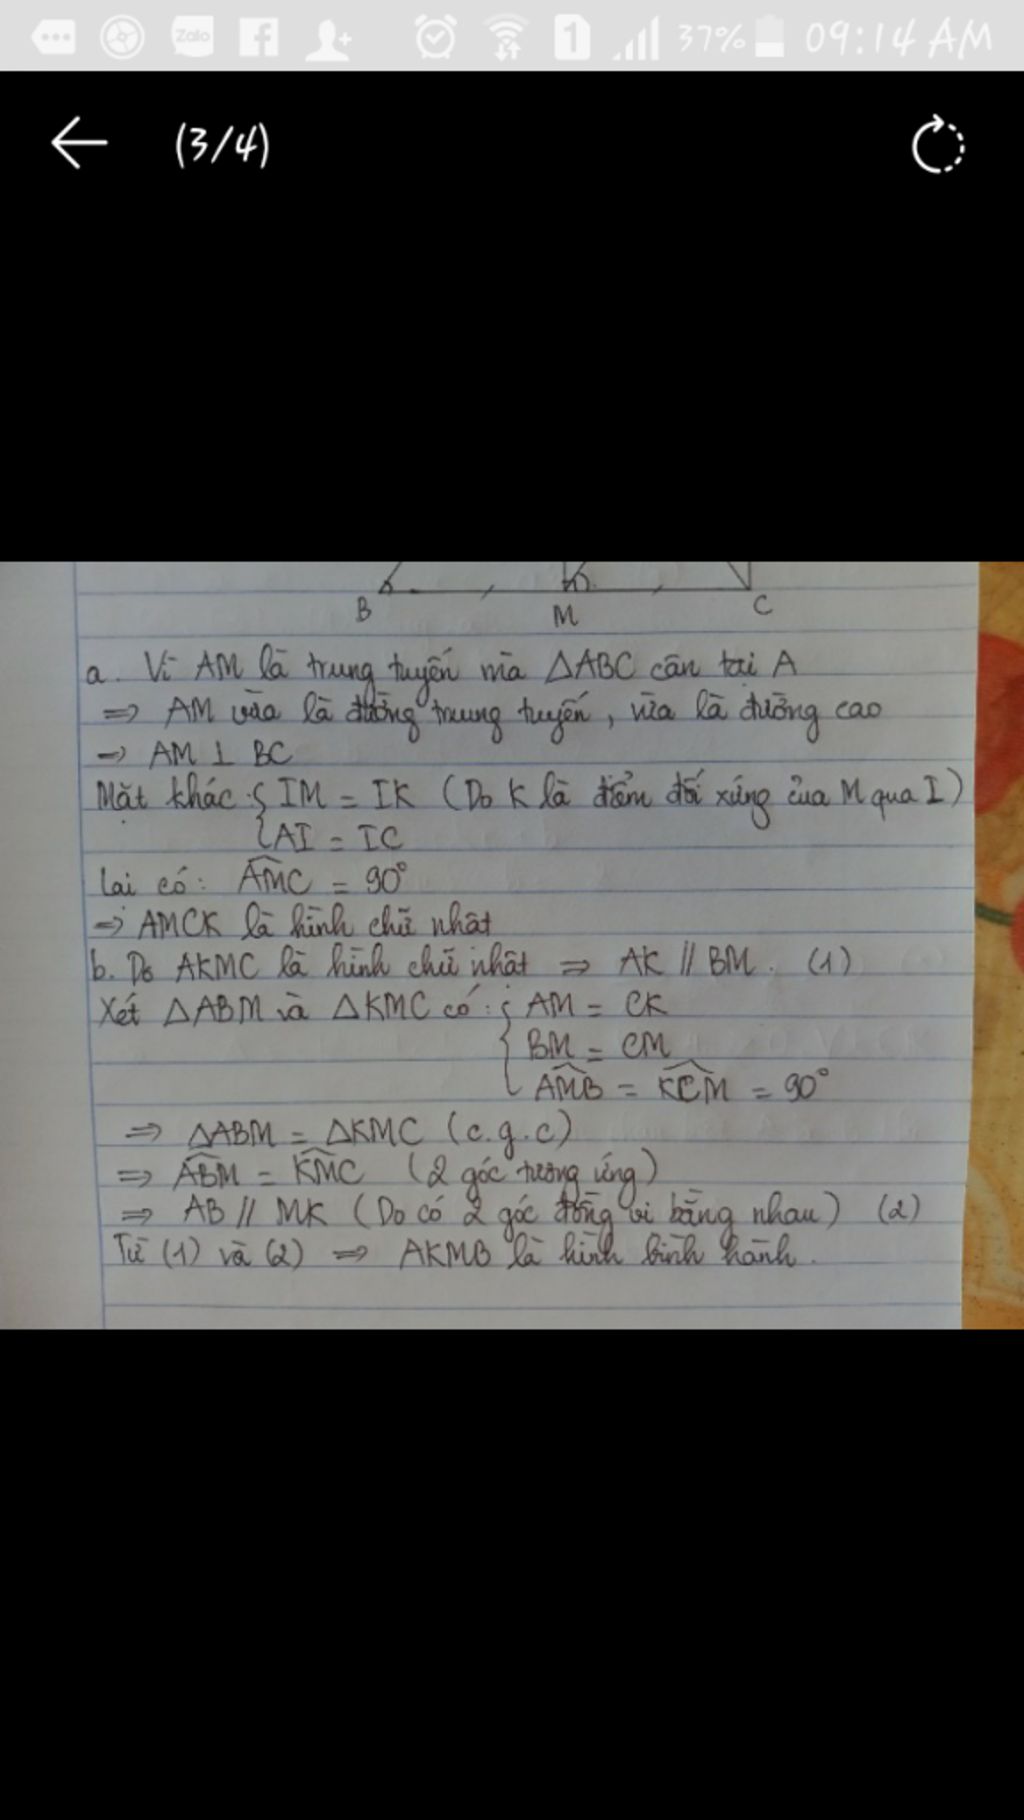 Zalo 1 37% 09:14 AM
(3/4)
B M C
a. Vì AM là trung tuyến mà ΔABC cân tại A
=> AM vừa là đường trung tuyến, vừa là đường cao
-> AM ⊥ BC
Mặt khác: { IM = IK (Do K là điểm đối xứng của M qua I)
{ AI = IC
Lại có: \widehat{AMC} = 90°
=> AMCK là hình chữ nhật
b. Do AKMC là hình chữ nhật => AK // BM. (1)
Xét ΔABM và ΔKMC có: { AM = CK
{ BM = CM
{ \widehat{AMB} = \widehat{KCM} = 90°
=> ΔABM = ΔKMC (c.g.c)
=> \widehat{ABM} = \widehat{KMC} (2 góc tương ứng)
=> AB // MK (Do có 2 góc đồng vị bằng nhau) (2)
Từ (1) và (2) => AKMB là hình bình hành.